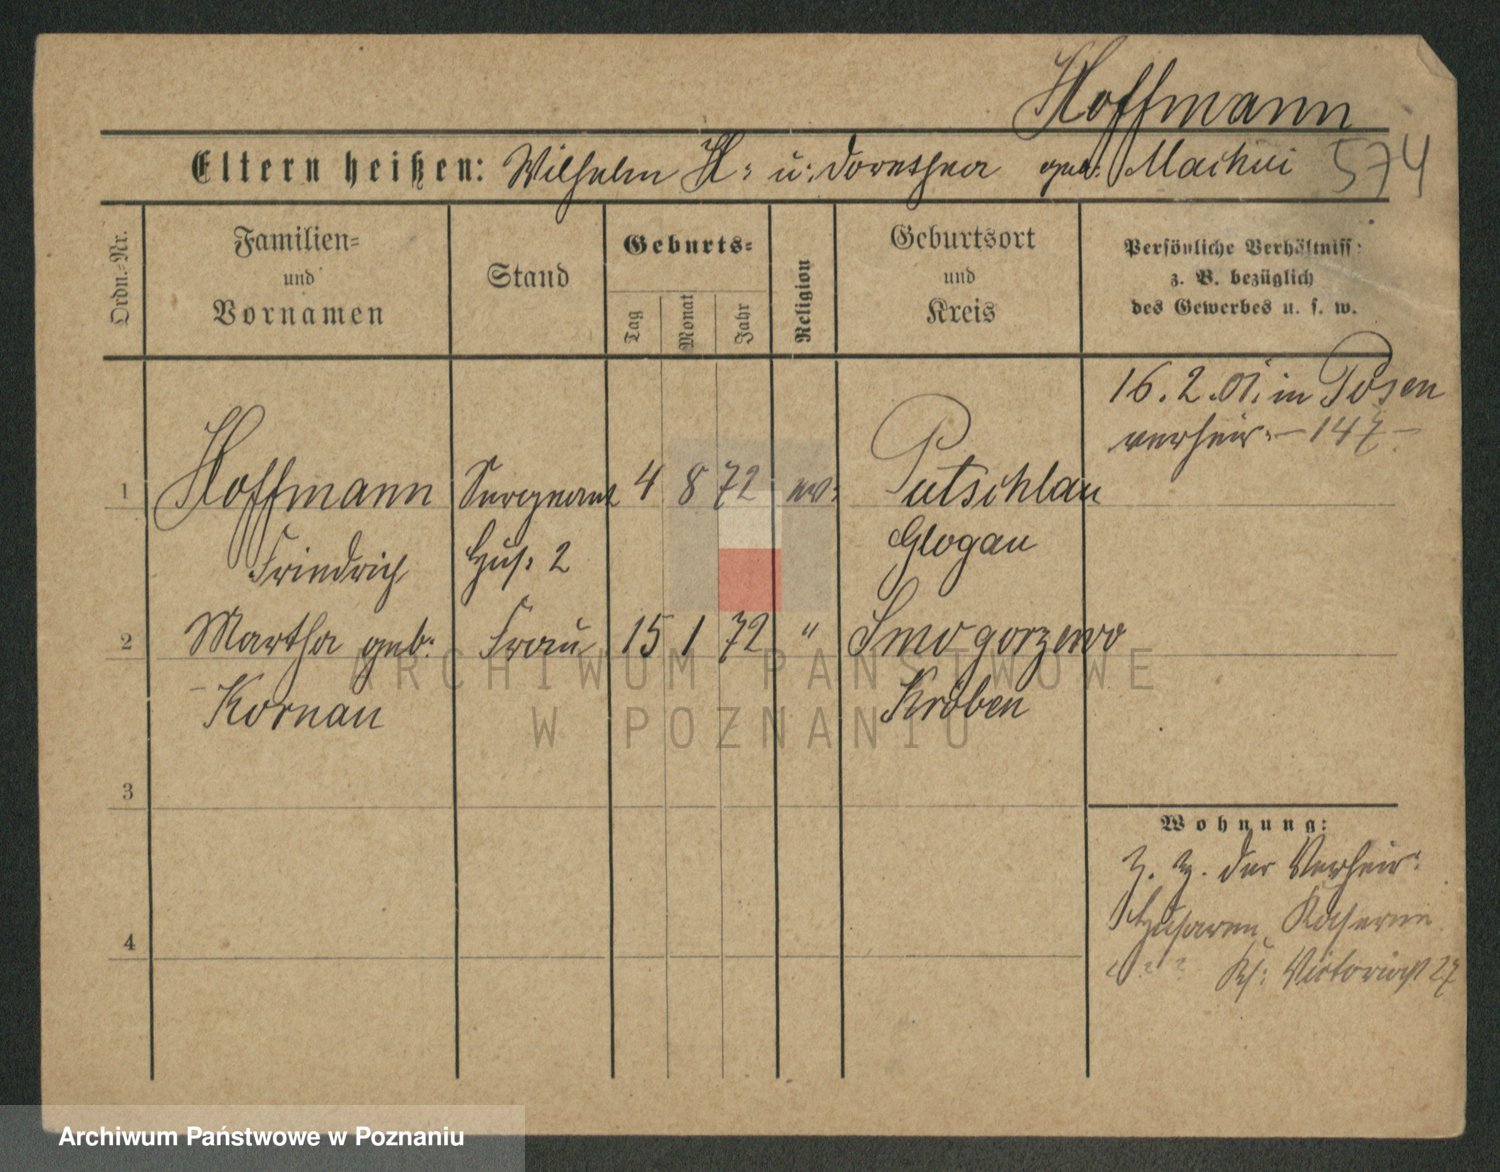 Hoffmann
Eltern heißen: Wilhelm H: u: Dorothea geb. 574
Ordn.-Nr.
Familien-
und
Vornamen
Stand
Geburts-
Tag
Monat
Jahr
Religion
Geburtsort
und
Kreis
Persönliche Verhältniss:
z. B. bezüglich
des Gewerbes u. s. w.
16. 2. 01. in Posen
verheir. - 147 -
1 Hoffmann Sergeant 4 8 72 ev: Putschlau
Friedrich Hus: 2 Glogau
2 Martha geb: Frau 15 1 72 " Smogorzewo
- Kornau Kröben
3
Wohnung:
Z. Z. der Verheir:
Husaren Kaserne
4
Victoriast 27
ARCHIWUM PAŃSTWOWE
W POZNANIU
Archiwum Państwowe w Poznaniu